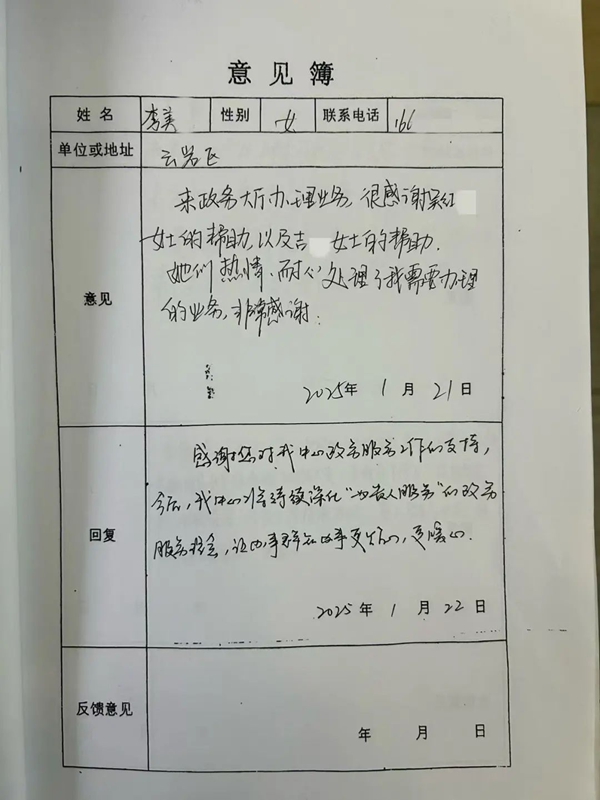 意见簿
姓名 李美 性别 女 联系电话 166
单位或地址 云岩区
意见
来政务大厅办理业务,很感谢吴红
女士的帮助,以及吉 女士的帮助.
她们热情、耐心处理了我需要办理
的业务,非常感谢.
2025年 1月 21日
回复
感谢您对我中心政务服务工作的支持,
今后,我中心将持续深化“ 贵人服务”的政务
服务理念,让办事群众办事更 ,更暖心.
2025年 1月 22日
反馈意见
年 月 日